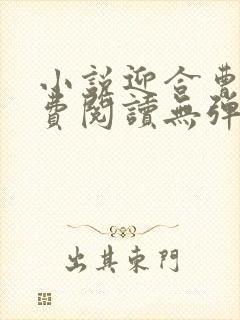 小說迎合曹
費閱讀無彈
出其東門